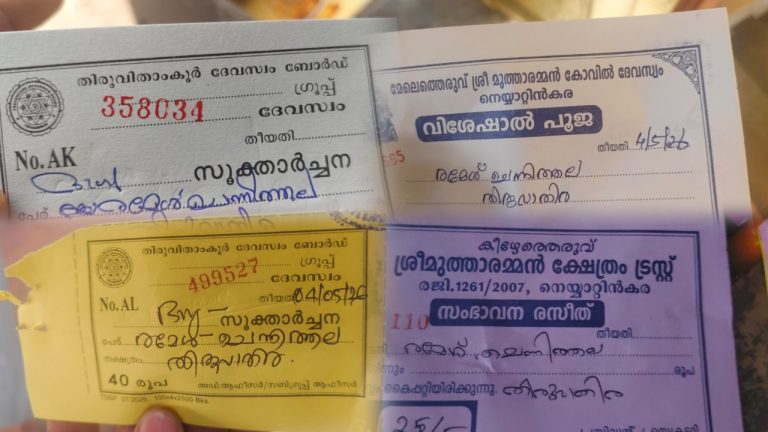 തിരുവിതാംകൂർ ദേവസ്വം ബോർഡ്
ഗ്രൂപ്പ്
358034
ദേവസ്വം
തീയതി
No. AK
സൂക്താർച്ചന
പേര്
രമേശ് ചെന്നിത്തല
മേലെത്തെരുവ് ശ്രീ മുത്താരമ്മൻ കോവിൽ ദേവസ്വം
നെയ്യാറ്റിൻകര
വിശേഷാൽ പൂജ
തീയതി 4/5/26
രമേശ് ചെന്നിത്തല
തിരുവാതിര
തിരുവിതാംകൂർ ദേവസ്വം ബോർഡ്
ഗ്രൂപ്പ്
499527
ദേവസ്വം
No. AL
തീയതി 04/05/26
സൂക്താർച്ചന
പേര് രമേശ് ചെന്നിത്തല
നക്ഷത്രം തിരുവാതിര
40 രൂപ
അഡ്:ആഫീസർ/സബ്ഗ്രൂപ്പ് ആഫീസർ
കീഴേത്തെരുവ്
ശ്രീമുത്താരമ്മൻ ക്ഷേത്രം ട്രസ്റ്റ്
രജി.1261/2007, നെയ്യാറ്റിൻകര
സംഭാവന രസീത്
110
തീയതി
രമേശ് ചെന്നിത്തല
നിന്നും
രൂപ
കൈപ്പറ്റിയിരിക്കുന്നു. തിരുവാതിര
25/-